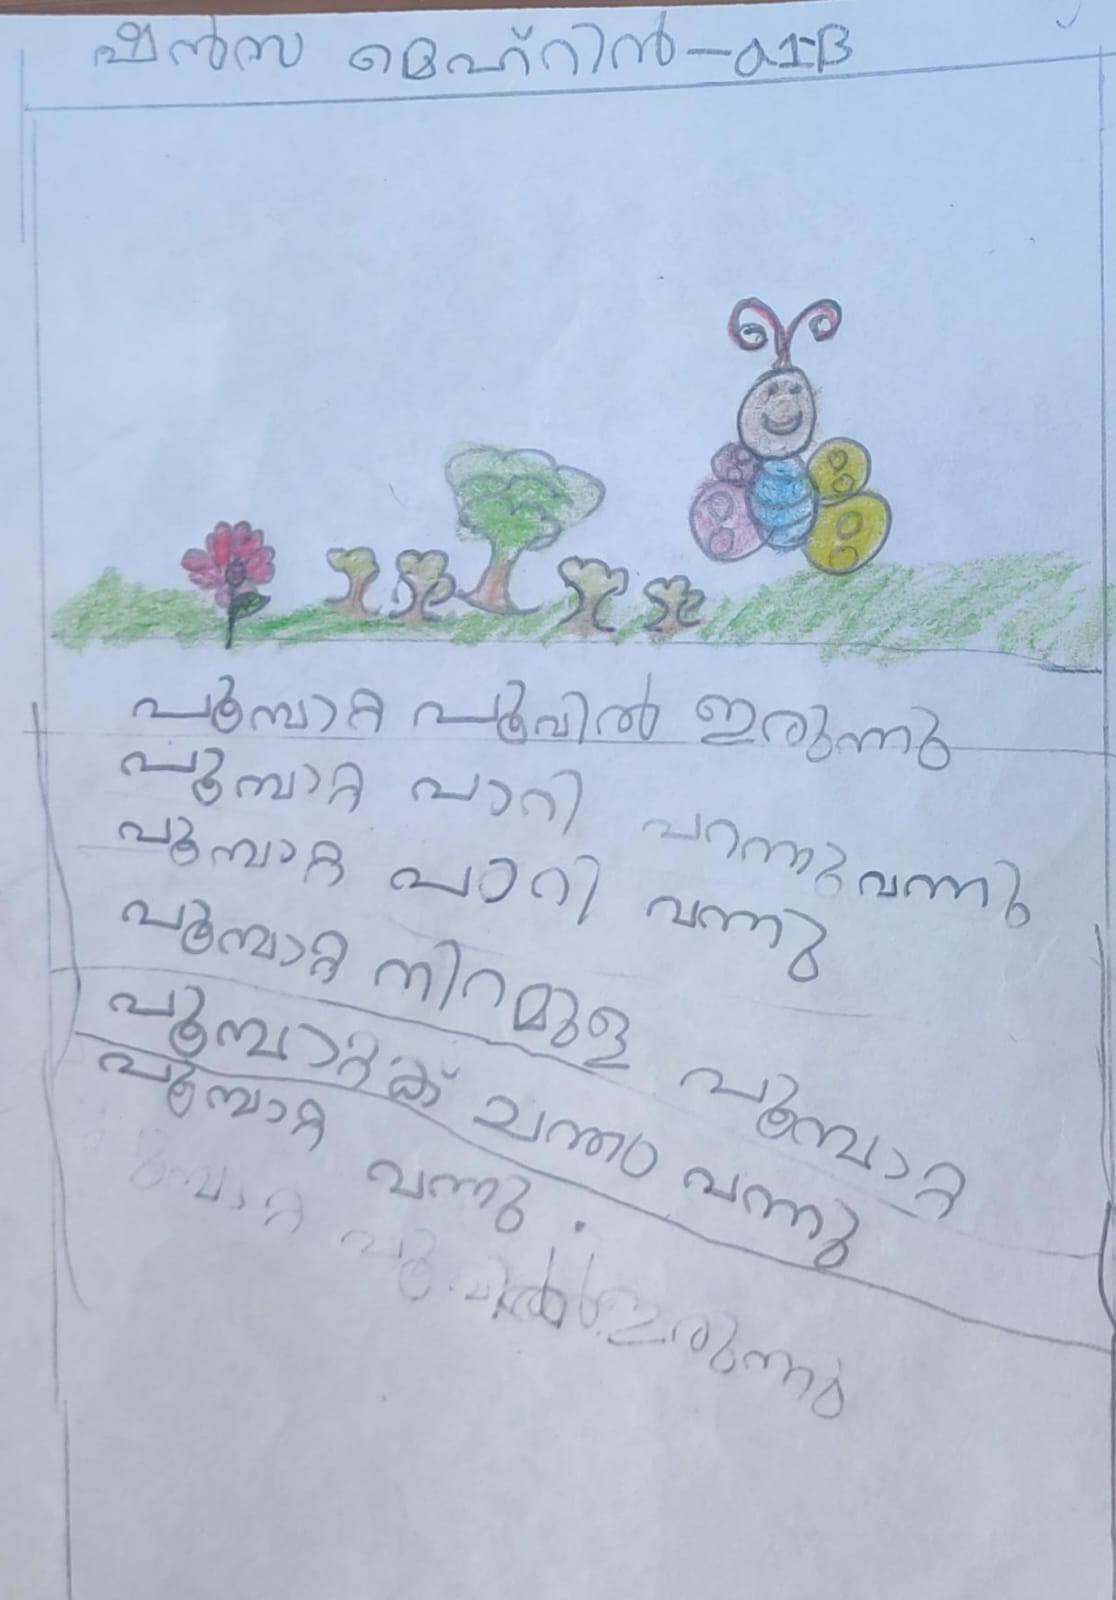 ഷൻസ മെഹ്റിൻ - 1-B
പൂമ്പാറ്റ പൂവിൽ ഇരുന്നു
പൂമ്പാറ്റ പാറി പറന്നു വന്നു
പൂമ്പാറ്റ പാറി വന്നു
പൂമ്പാറ്റ നിറമുള പൂമ്പാറ്റ
പൂമ്പാറ്റക്ക് ചന്തം വന്നു
പൂമ്പാറ്റ വന്നു .
പൂമ്പാറ്റ പൂവിൽ ഇരുന്നു